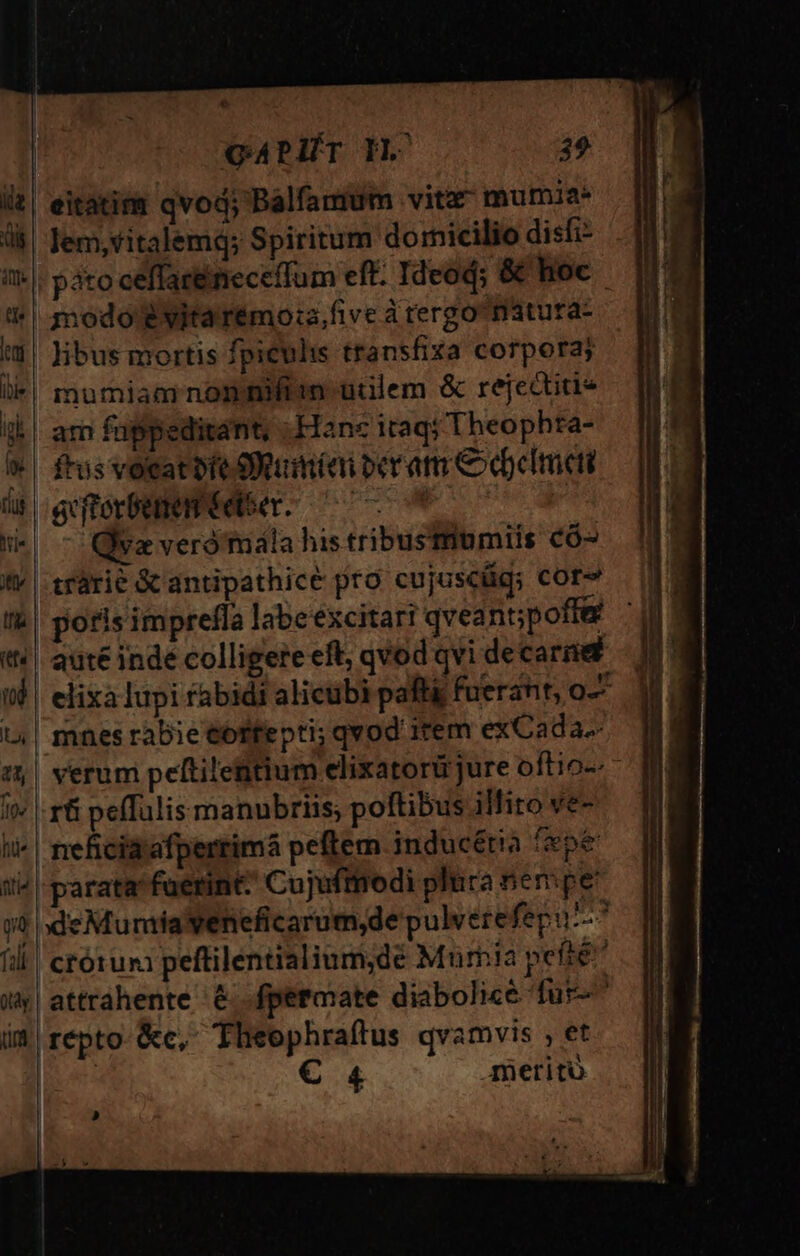 CAPUT II. 39
citatim qvod; Balſamum vitæ mumia-
lem,vitalemq; Spiritum domicilio diſſi-
pato ceſſare neceſſum eſt. Ideoq; & hoc
modo è vita remota,ſive à tergo natura-
libus mortis ſpiculis transfixa corpora;
mumiam non niſi in utilem & rejectiti-
am ſuppeditant, Hanc itaq; Theophra-
ſtus vocat die Mumien der am Schelmen
geſtorbenen Leiber.
Qvæ verò mala his tribus mumiis cō-
trariè & antipathicè pro cujuscūq; cor-
poris impreſſa labe excitari qveant;poſſe
autē inde colligere eſt, qvod qvi de carne
elixa lupi rabidi alicubi paſti fuerant, o-
mnes rabie correpti; qvod item ex Cada-
verum peſtilentium elixatorū jure oſtio-
rū peſſulis manubriis, poſtibus illito ve-
neficia aſperrimā peſtem inducētia ſæpe
parata fuerint. Cujuſmodi plura nempe
de Mumia veneficarum,de pulvere ſepul-
crorum peſtilentialium,de Mumia peſtē
attrahente è ſpermate diabolicè ſur-
repto &c, Theophraſtus qvamvis , et
C 4 meritò